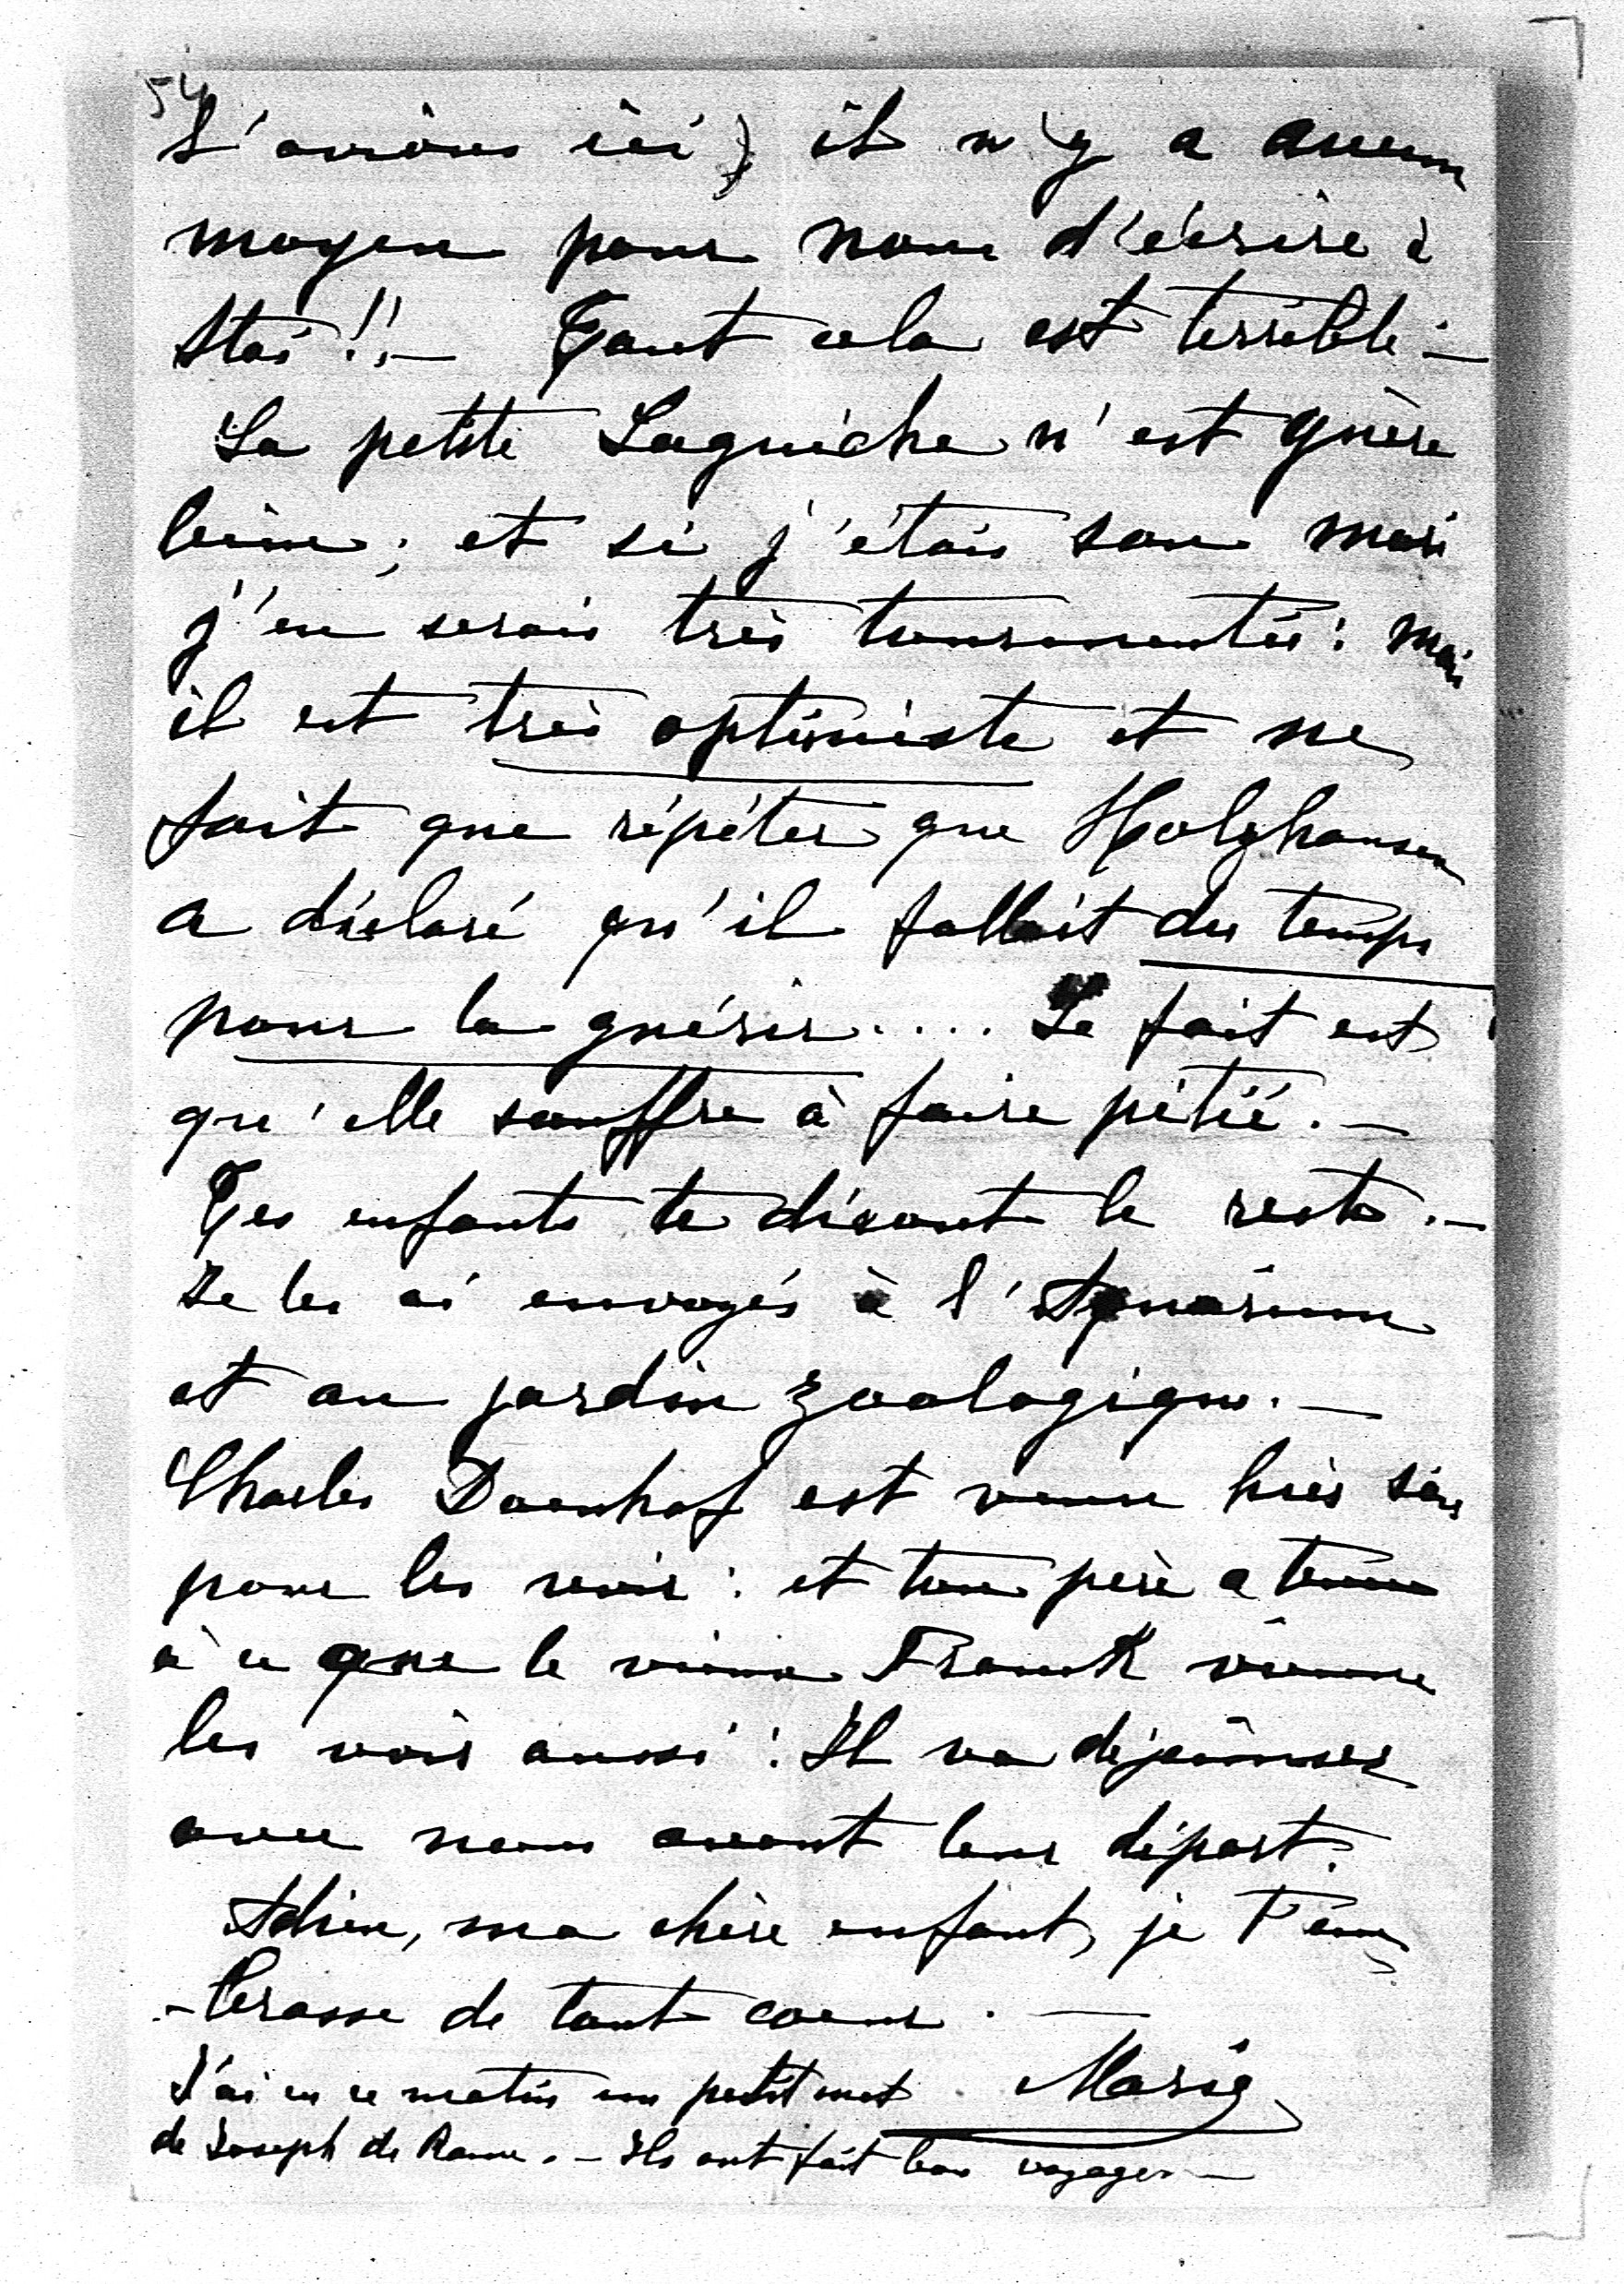 54
l'avions ici) il n'y a aucun
moyen pour nous d'écrire à
Stas!! — Tout cela est terrible —
La petite Laguiche n'est guère
bien; et si j'étais son mari
j'en serais très tourmentée: mais
il est très optimiste et ne
fait que répéter que Holzhausen
a déclaré qu'il fallait du temps
pour la guérir.... Le fait est
qu'elle souffre à faire pitié. —
Tes enfants te diront le reste. —
Je les ai envoyés à l'Aquarium
et au jardin zoologique. —
Charles Doenhof est venu hier soir
pour les revoir: et ton père a tenu
à ce que le vieux Frank vienne
les voir aussi: Il va déjeûner
avec nous avant leur départ.
Adieu, ma chère enfant, je t'em
-brasse de tout coeur. —
J'ai eu ce matin un petit mot Marie
de Joseph de Rome. — Ils ont fait bon voyage. —